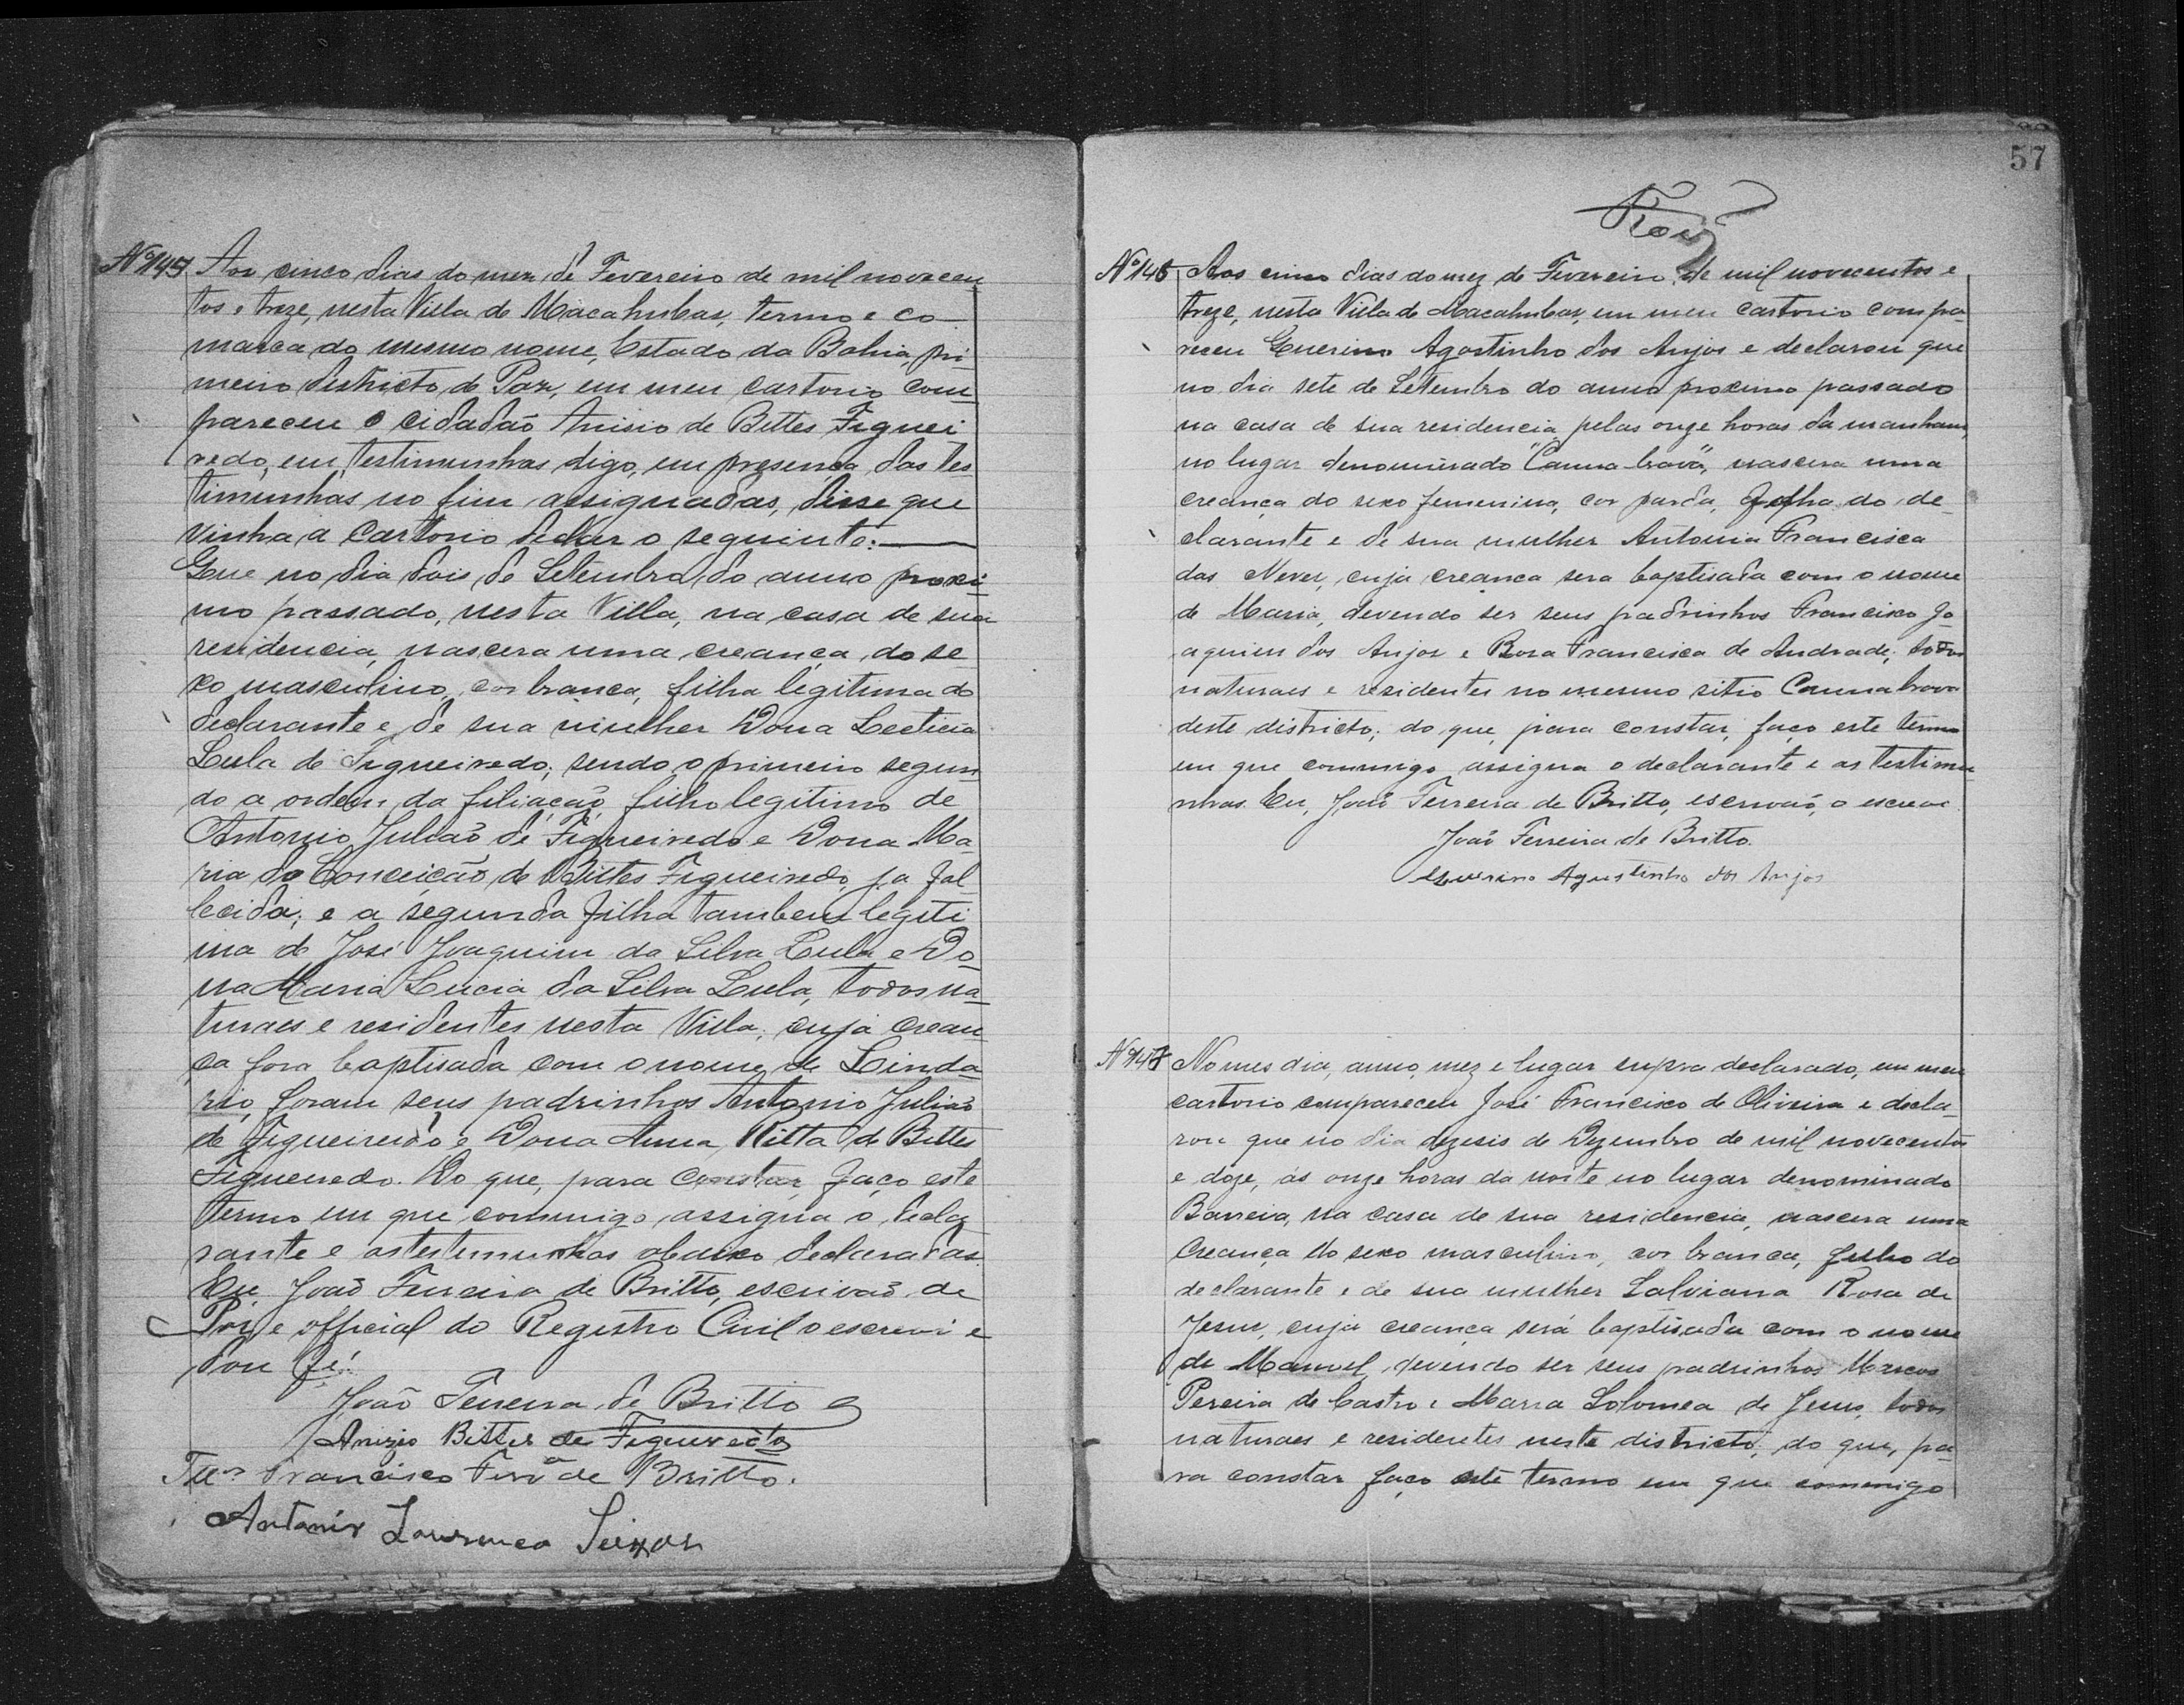 Nº 145 Aos cinco dias do mez de Fevereiro de mil novecen
tos e treze, nesta Villa de Macahubas, termo e co-
marca do mesmo nome, Estado da Bahia, pri
meiro destricto de Paz, em meu cartorio com
pareceu o cidadão Anisio de Bittes Figuei
redo, em testimunhas digo, em presença das tes
timunhas no fim assignadas, disse que
vinha a cartorio declar o seguinte:
Que no dia dois de Setembro do anno proxi
mo passado, nesta Villa, na casa de sua
residencia, nascera uma creança, do se
xo masculino, cor branca, filha legitima do
declarante e de sua mulher Dona Lecticia
Lula de Figueiredo; sendo o primeiro segun
do a ordem da filiação, filho legitimo de
Antonio Julião de Figueiredo e Dona Ma
ria da Conceição de Bittes Figueiredo, ja fal
lecida; e a segunda filha tambem legiti
ma de José Joaquim da Silva Lula e Do
na Maria Lucia da Silva Lula, todos na
turaes e residentes nesta Villa; cuja crean
ça fora baptisada com o nome de Linda
rio, foram seus padrinhos Antonio Julião
de Figueiredo e Dona Anna Ritta de Bittes
Figueiredo. Do que, para constar, faço este
termo em que commigo assigna o decla
rante e as testimunhas abaixo declaradas.
Eu, João Ferreira de Britto, escrivão de
Paz e official do Registro Civil o escrevi e
dou fé.
João Ferreira de Britto
Anizio Bittes de Figueredo
Francisco Ferrª de Britto.
Antonio Lourenço Seixas
57
Nº 146 Aos cinco dias do mez de Fevereiro de mil novecentos e
treze, nesta Villa de Macahubas, em meu cartorio compa-
receu Guerino Agostinho dos Anjos e declarou que
no dia sete de Setembro do anno proximo passado
na casa de sua residencia, pelas onze horas da manham,
no lugar denominado "Canna-brava", nascera uma
creança do sexo femenino, cor parda, filha do de-
clarante e de sua mulher Antonia Francisca
das Neves, cuja creança sera baptisada com o nome
de Maria, devendo ser seus padrinhos Francisco Jo
aquim dos Anjos e Rosa Francisca de Andrade; todos
naturaes e residentes no mesmo sitio Canna brava
deste districto; do que, para constar, faço este termo
em que commigo assigna o declarante e as testimu
nhas. Eu, João Ferreira de Britto, escrivão, o escrevi.
João Ferreira de Britto.
Guerino Agustinho dos Anjos
Nº 147 No mes dia, anno, mez e lugar supra declarado, em meu
cartorio compareceu José Francisco de Oliveira e decla-
rou que no dia dezesis de Dezembro de mil novecentos
e doze, ás onze horas da noite no lugar denominado
Barreira, na casa de sua residencia, nascera uma
creança do sexo masculino, cor branca, filho do
declarante e de sua mulher Salviana Rosa de
Jesus, cuja creança será baptisada com o nome
de Manoel, devendo ser seus padrinhos Marcos
Pereira de Castro e Maria Solomea de Jesus, todos
naturaes e residentes neste districto; do que, pa-
ra constar faço este termo em que commigo